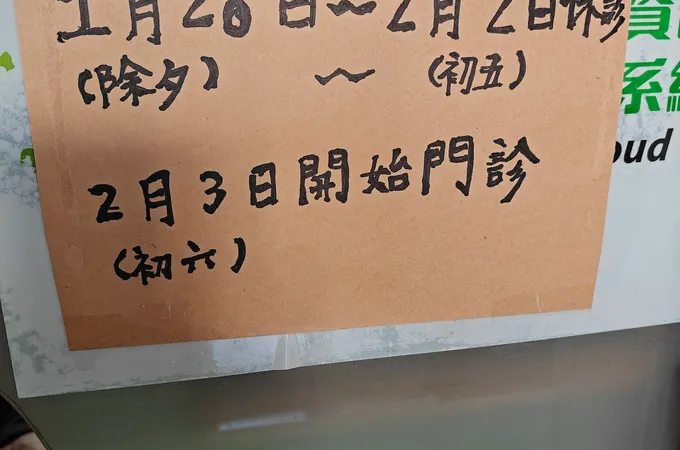 1月28日～2月2日休診
(除夕) ～ (初五)
2月3日開始門診
(初六)
資
系統
oud